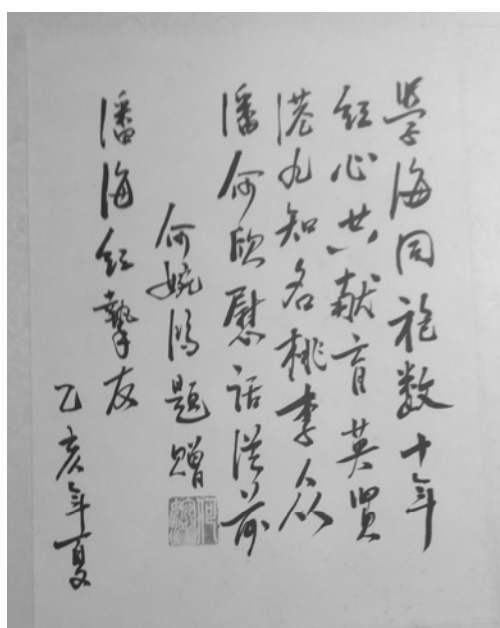 學海同袍数十年
红心共献育英贤
港九知名桃李众
潘何欣慰话從前
何婉鸿題贈
潘海红摯友
乙亥年夏